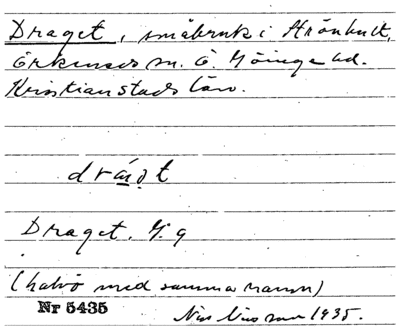 Draget, småbruk i Strönhult,
Örkeneds sn. Ö. Göinge hd.
Kristianstads län.
dráːgt
Draget, G. 9
(halvö med samma namn)
Nr 5435 Nils Nilsson 1935.